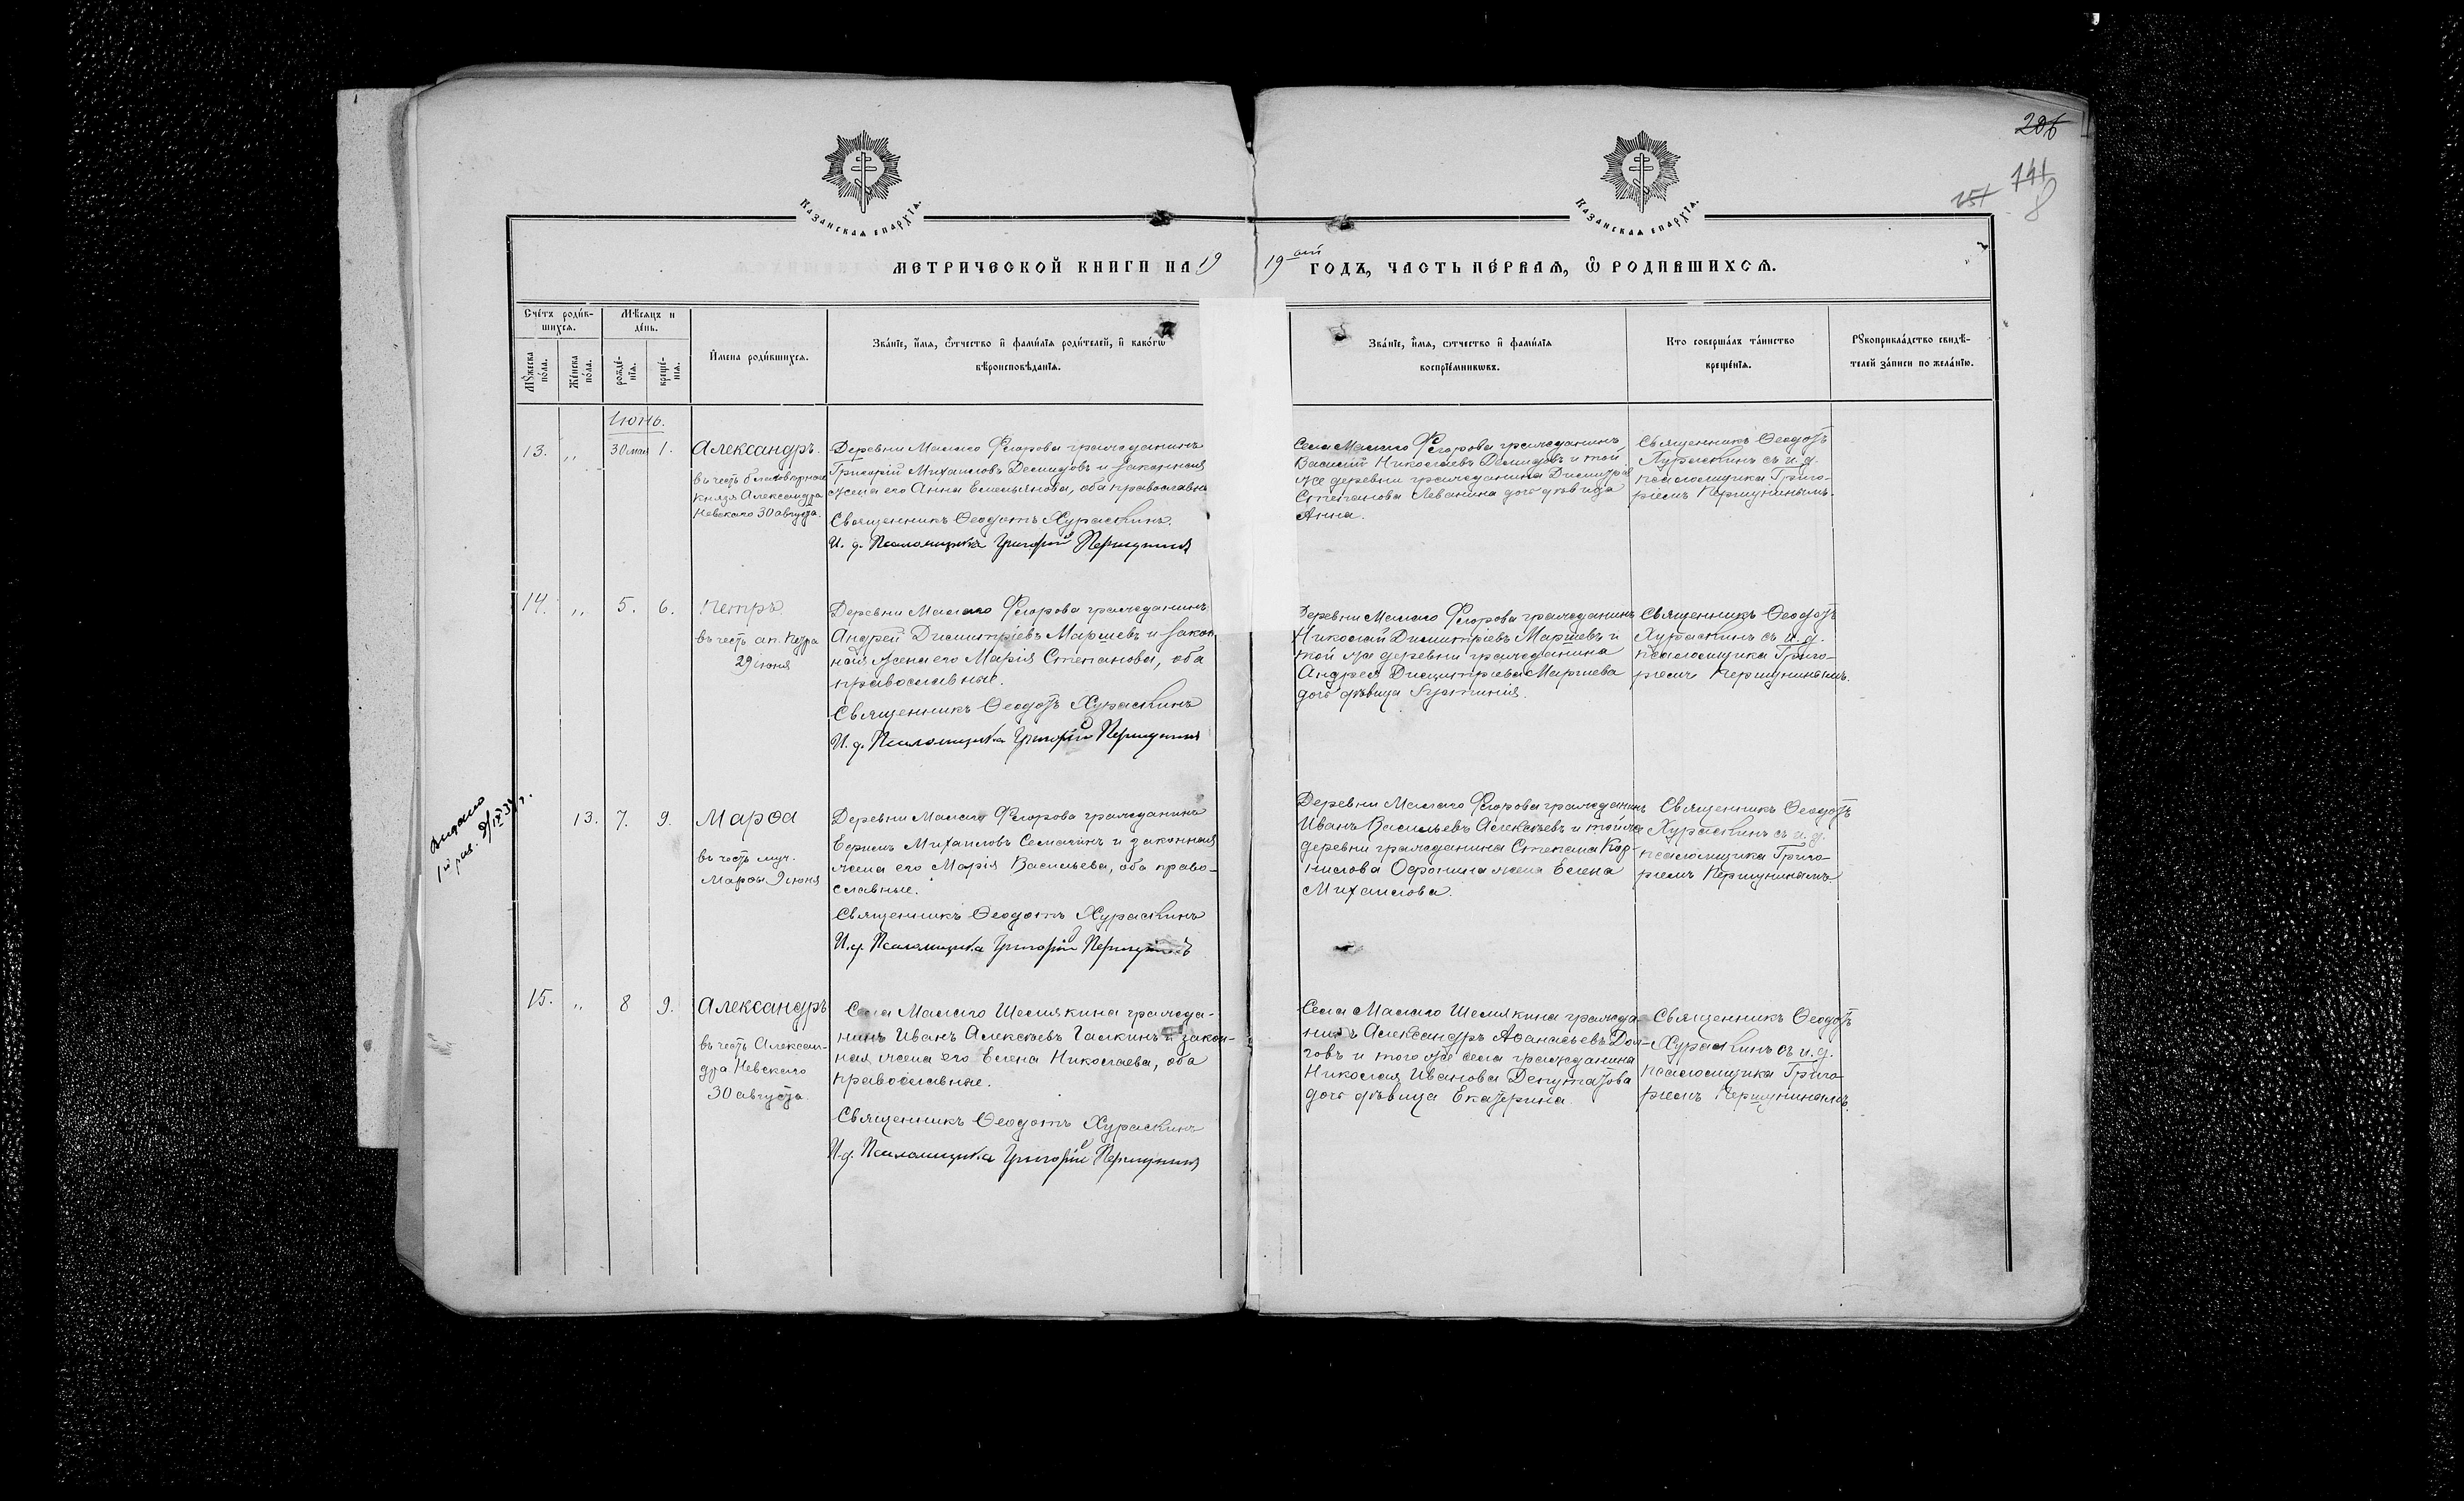 206
141
151
8
Казанская епархїа.
Казанская епархїа.
МЕТРИЧЕСКОЙ КНИГИ НА 19
19 ый ГОДЪ, ЧАСТЬ ПЕ́РВАЯ, Ѡ РОДИВШИХСЯ.
Сче́тъ роди́в-
шихся.
Мѣсяцъ и
де́нь.
Мꙋ́жеска
по́ла.
Же́нска
по́ла.
рожде́-
нїя.
креще́-
нїя.
И́мена роди́вшихся.
Зва́нїе, и́мя, ѻ́тчество и҆ фами́лїя роди́телей, и҆ како́гѡ
вѣроисповѣ́данїя.
Зва́нїе, и́мя, ѻтчество и҆ фами́лїя
воспрїе́мникѡвъ.
Кто соверша́лъ та́инство
креще́нїя.
Рꙋкоприкла́дство свидѣ́-
телей за́писи по жела́нїю.
Июнь.
13. „ 30 мая 1. Александръ.
въ честь благовѣрнаго
Князя Александра
Невскаго 30 августа.
Деревни Малаго Ѳедорова гражданинъ
Григорій Михаиловъ Демидовъ и законная
жена его Анна Емельянова, оба православны
Священникъ Ѳеодотъ Хураскинъ.
И. д. Псаломщика Григорій Першунинъ
Села Малаго Ѳедорова гражданинъ
Василій Николаевъ Демидовъ и той
же деревни гражданина Димитрія
Степанова Леванина дочь дѣвица
Анна.
Священникъ Ѳеодотъ
Хураскинъ съ и. д.
псаломщика Григо-
ріемъ Першунинымъ.
14. „ 5. 6. Петръ
въ честь ап. Петра
29 июня
Деревни Малаго Ѳедорова гражданинъ
Андрей Димитріевъ Маршевъ и закон
ная жена его Марія Степанова, оба
православные.
Священникъ Ѳеодотъ Хураскинъ
И. д. Псаломщика Григорій Першунинъ
Деревни Малаго Ѳедорова гражданинъ
Николай Димитріевъ Маршевъ и
той же деревни гражданина
Андрея Димитріева Маршева
дочь дѣвица
Священникъ Ѳеодотъ
Хураскинъ съ и. д.
псаломщика Григо-
ріемъ Першунинымъ.
Выдано
1й раз.
13. 7. 9. Марѳа
въ честь муч.
Марѳы 9 июня
Деревни Малаго Ѳедорова гражданинъ
Ефримъ Михаиловъ и законная
жена его Марія Васильева, оба право-
славные.
Священникъ Ѳеодотъ Хураскинъ
И. д. Псаломщика Григорій Першунинъ
Деревни Малаго Ѳедорова гражданинъ
Иванъ Васильевъ Алексѣевъ и той же
деревни гражданина Степана Кор-
нилова Афонина жена Елена
Михаилова.
Священникъ Ѳеодотъ
Хураскинъ съ и. д.
псаломщика Григо-
ріемъ Першунинымъ
15. „ 8 9. Александръ
въ честь Алексан-
дра Невскаго
30 августа.
Села Малаго Шемякина гражда-
нинъ Иванъ Алексѣевъ Галкинъ и закон-
ная жена его Елена Николаева, оба
православные.
Священникъ Ѳеодотъ Хураскинъ
И. д. Псаломщика Григорій Першунинъ
Села Малаго Шемякина гражда-
нинъ Александръ Аѳанасьевъ Дол-
говъ и того же села гражданина
Николая Иванова Депутатова
дочь дѣвица Екатерина.
Священникъ Ѳеодотъ
Хураскинъ съ и. д.
псаломщика Григо-
ріемъ Першунинымъ.